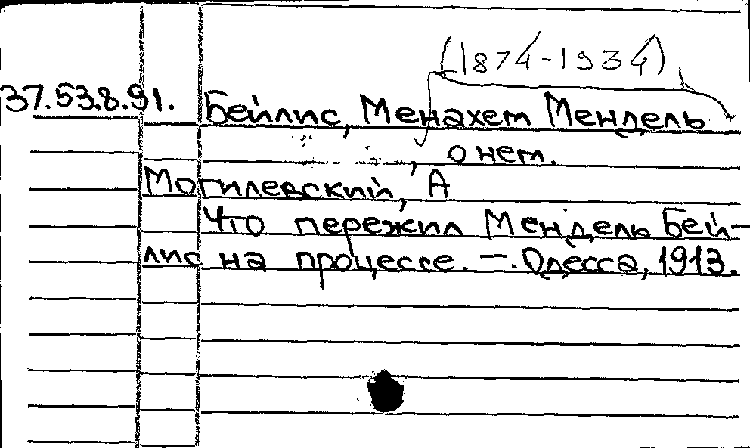 (1874-1934)
37.53.8.91. Бейлис, Менахем Мендель
, о нем.
Могилевский, А
Что пережил Мендель Бей-
лис на процессе. —. Одесса, 1913.